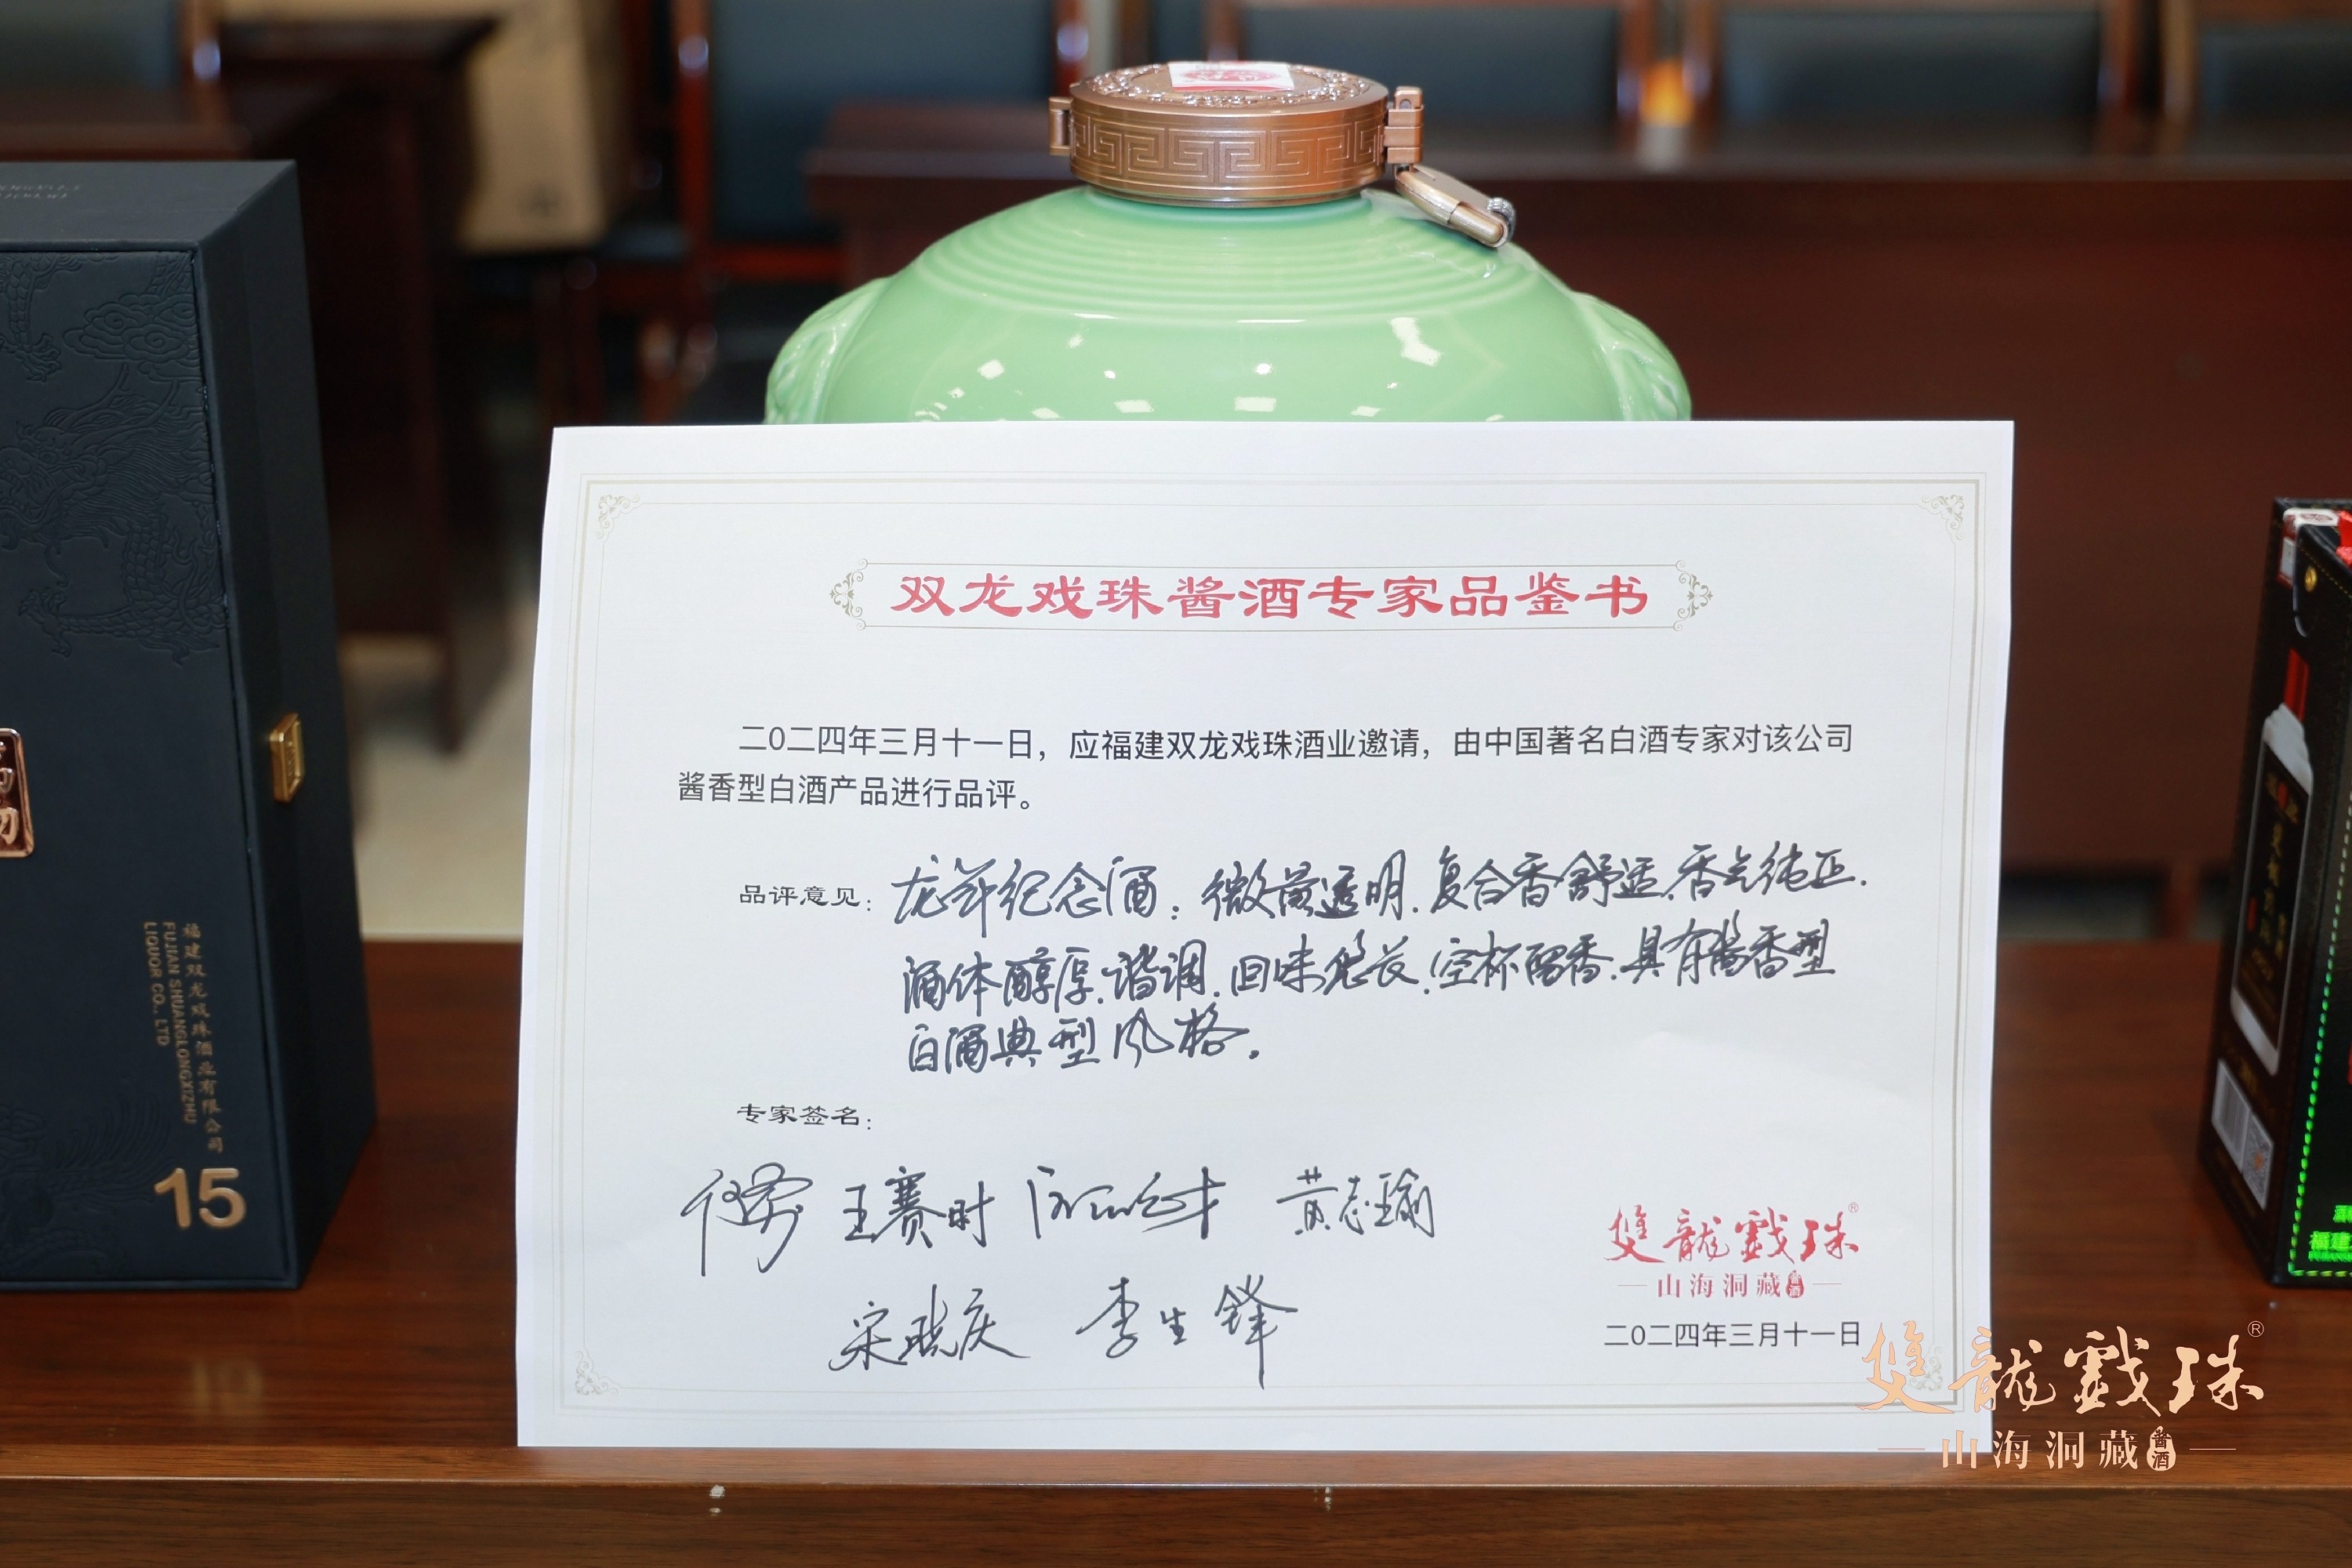 双龙戏珠酱酒专家品鉴书
二0二四年三月十一日，应福建双龙戏珠酒业邀请，由中国著名白酒专家对该公司
酱香型白酒产品进行品评。
品评意见：龙年纪念酒：微黄透明.复合香舒适.香气纯正.
酒体醇厚.谐调.回味悠长.空杯留香.具有酱香型
白酒典型风格.
专家签名：
王赛时 黄志瑜
宋晓庆 李生锋
雙龍戲珠®
山海洞藏 酱酒
二0二四年三月十一日
福建双龙戏珠酒业有限公司
FUJIAN SHUANGLONGXIZHU
LIQUOR CO., LTD
15
福建
雙龍戲珠®
山海洞藏 酱酒